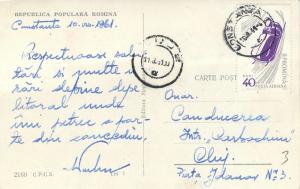 REPUBLICA POPULARA ROMINA
Constanta 10.IX.1961.
Respectuoase salu-
tări și multe u-
rări de bine de pe
litoral unde
îmi petrec o par-
te din concediu.
2160 C.P.C.S.
CARTE POSTALA
CONSTANTA
CLUJ
R.P.ROMINA
40
POSTA AERIANA
Onor.
Conducerea
Intr. "Carbochim"
Cluj
Piata Jdanov Nr. 3.